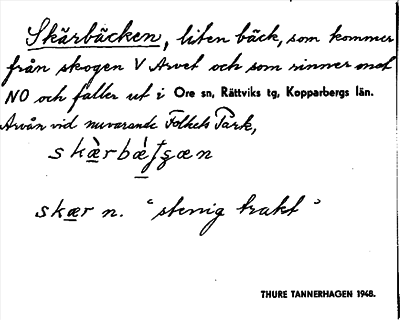 Skärbäcken, liten bäck, som kommer
från skogen V Arvet och som rinner mot
NO och faller ut i Ore sn, Rättviks tg, Kopparbergs län.
Arvån vid nuvarande Folkets Park,
skær n. "stenig trakt"
THURE TANNERHAGEN 1948.